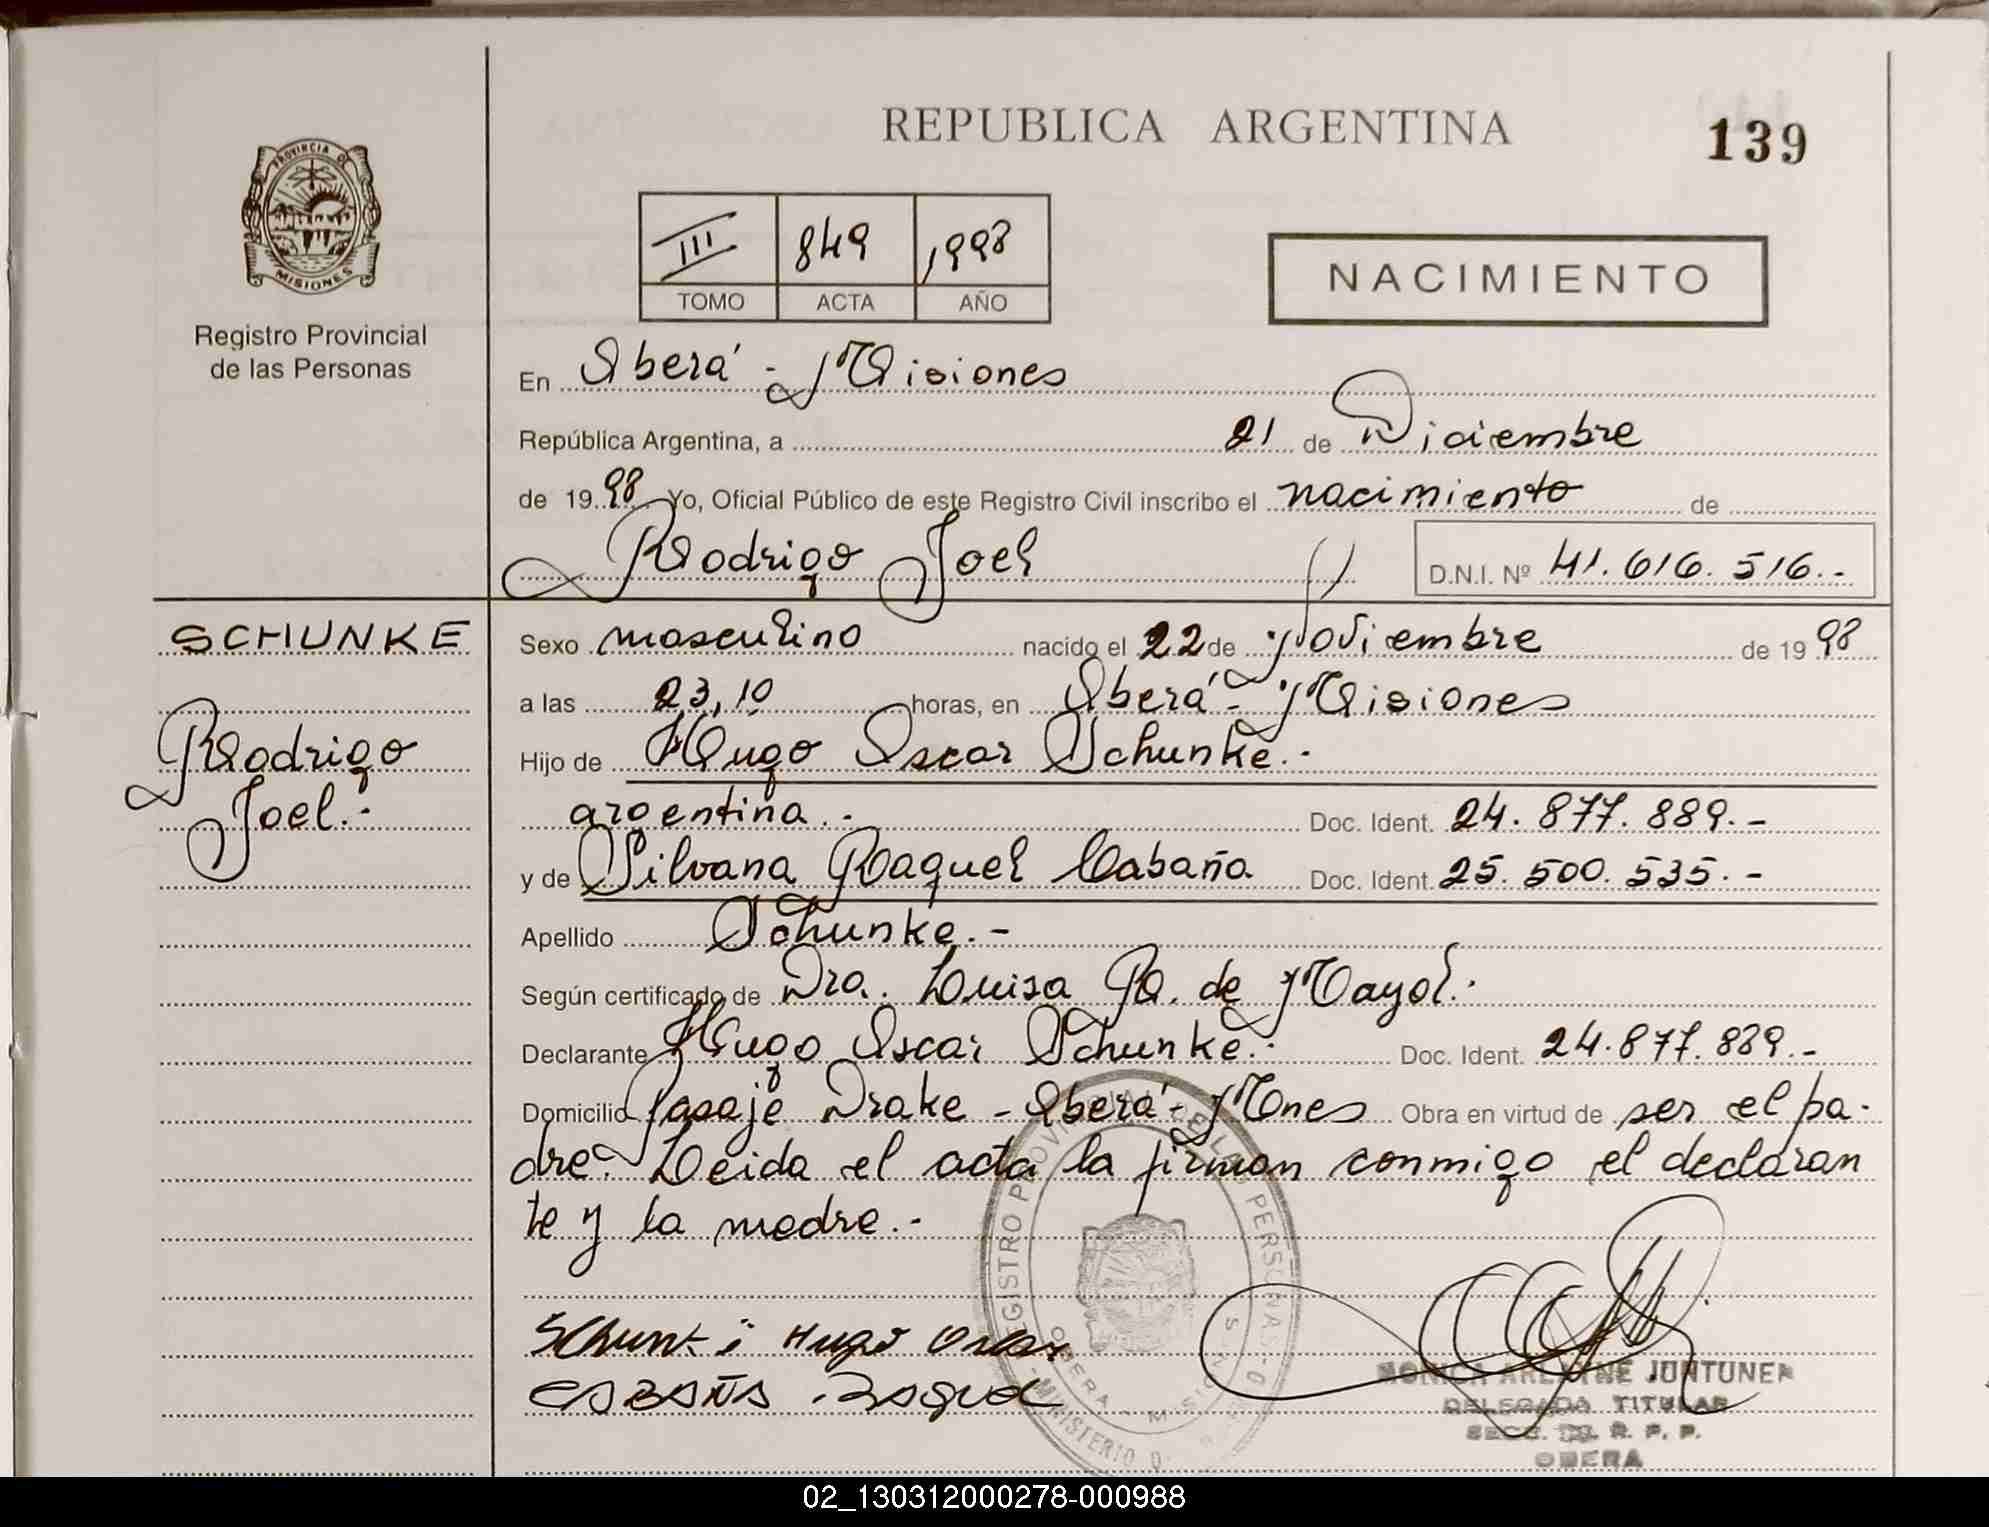 REPUBLICA ARGENTINA
139
PROVINCIA DE
MISIONES
Registro Provincial
de las Personas
III 849 1998
TOMO ACTA AÑO
NACIMIENTO
En Oberá - Misiones
República Argentina, a 21 de Diciembre
de 1998 Yo, Oficial Público de este Registro Civil inscribo el nacimiento de
Rodrigo Joel
D.N.I. Nº 41.616.516.-
SCHUNKE
Rodrigo
Joel.-
Sexo masculino nacido el 22 de Noviembre de 1998
a las 23,10 horas, en Oberá - Misiones
Hijo de Hugo Oscar Schunke.-
argentina.- Doc. Ident. 24.877.889.-
y de Silvana Raquel Cabaña Doc. Ident. 25.500.535.-
Apellido Schunke.-
Según certificado de Dra. Luisa R. de Mayol.-
Declarante Hugo Oscar Schunke.- Doc. Ident. 24.877.889.-
Domicilio Pasaje Drake - Oberá - Mnes Obra en virtud de ser el pa-
dre. Leida el acta la firman conmigo el declaran
te y la madre.-
REGISTRO PROVINCIAL DE LAS PERSONAS
OBERA - MISIONES
MINISTERIO D
Schunke Hugo Oscar
CABAÑA Raquel
MONICA ARLAYNE JUNTUNEN
DELEGADA TITULAR
R. P. P.
OBERA
02_130312000278-000988